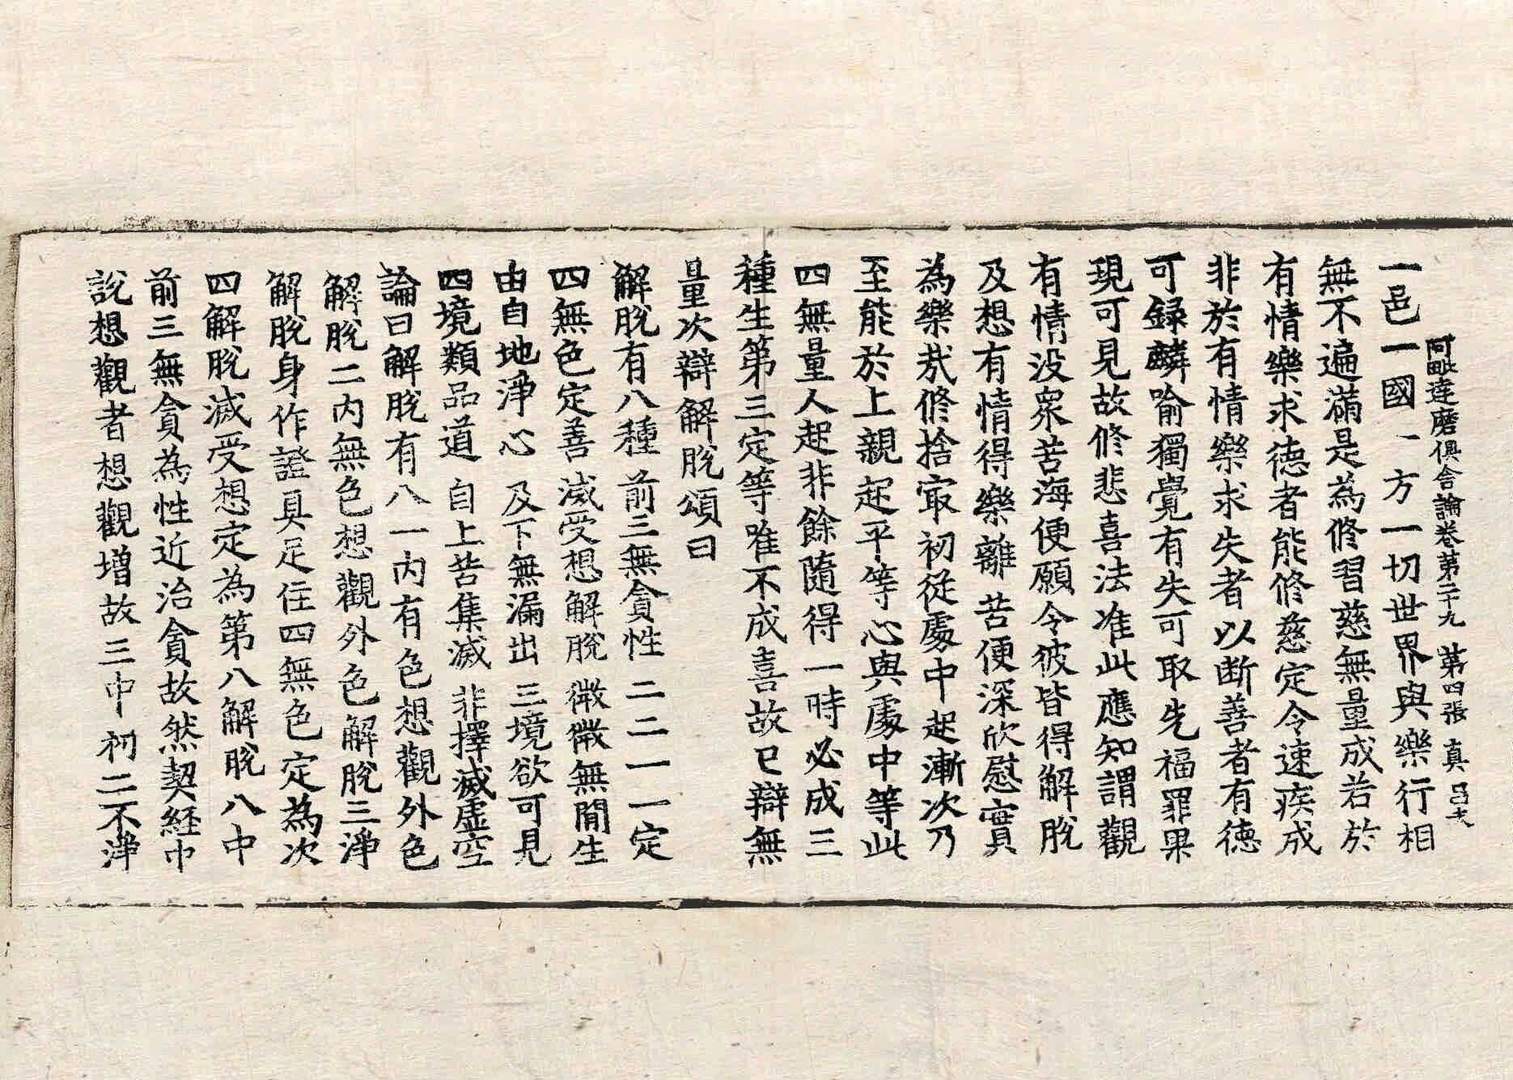 阿毗達磨俱舍論卷第二十九 第四張 真 呂夫
一邑一國一方一切世界與樂行相
無不遍滿是為修習慈無量成若於
有情樂求德者能修慈定令速疾成
非於有情樂求失者以斷善者有德
可録麟喻獨覺有失可取先福罪果
現可見故修悲喜法准此應知謂觀
有情没衆苦海便願令彼皆得解脫
及想有情得樂離苦便深欣慰實
為樂㢤修捨㝡初從處中起漸次乃
至能於上親起平等心與處中等此
四無量人起非餘隨得一時必成三
種生第三定等唯不成喜故已辯無
量次辯解脫頌曰
解脫有八種 前三無貪性 二二一一定
四無色定善 滅受想解脫 微微無閒生
由自地淨心 及下無漏出 三境欲可見
四境類品道 自上苦集滅 非擇滅虛空
論曰解脫有八一內有色想觀外色
解脫二內無色想觀外色解脫三淨
解脫身作證具足住四無色定為次
四解脫滅受想定為第八解脫八中
前三無貪為性近治貪故然契經中
說想觀者想觀增故三中初二不淨